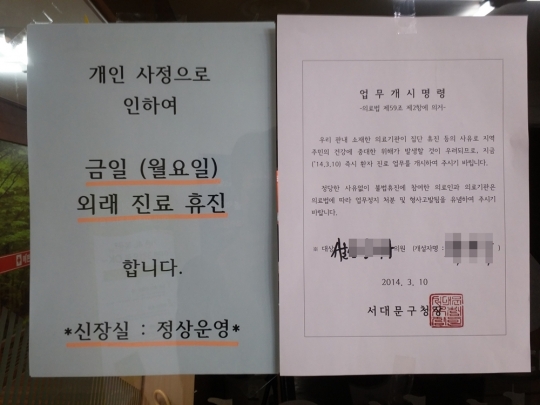 개인 사정으로
인하여
금일 (월요일)
외래 진료 휴진
합니다.
*신장실 : 정상운영*
업무개시명령
-의료법 제59조 제2항에 의거-
우리 관내 소재한 의료기관이 집단 휴진 등의 사유로 지역
주민의 건강에 중대한 위해가 발생할 것이 우려되므로, 지금
('14.3.10) 즉시 환자 진료 업무를 개시하여 주시기 바랍니다.
정당한 사유없이 불법휴진에 참여한 의료인과 의료기관은
의료법에 따라 업무정지 처분 및 형사고발됨을 유념하여 주시기
바랍니다.
※ 대상 의원 (개설자명 : )
2014. 3. 10
서대문구청장